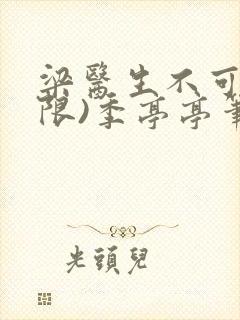 梁醫生不可
限)季亭亭
光頭兒